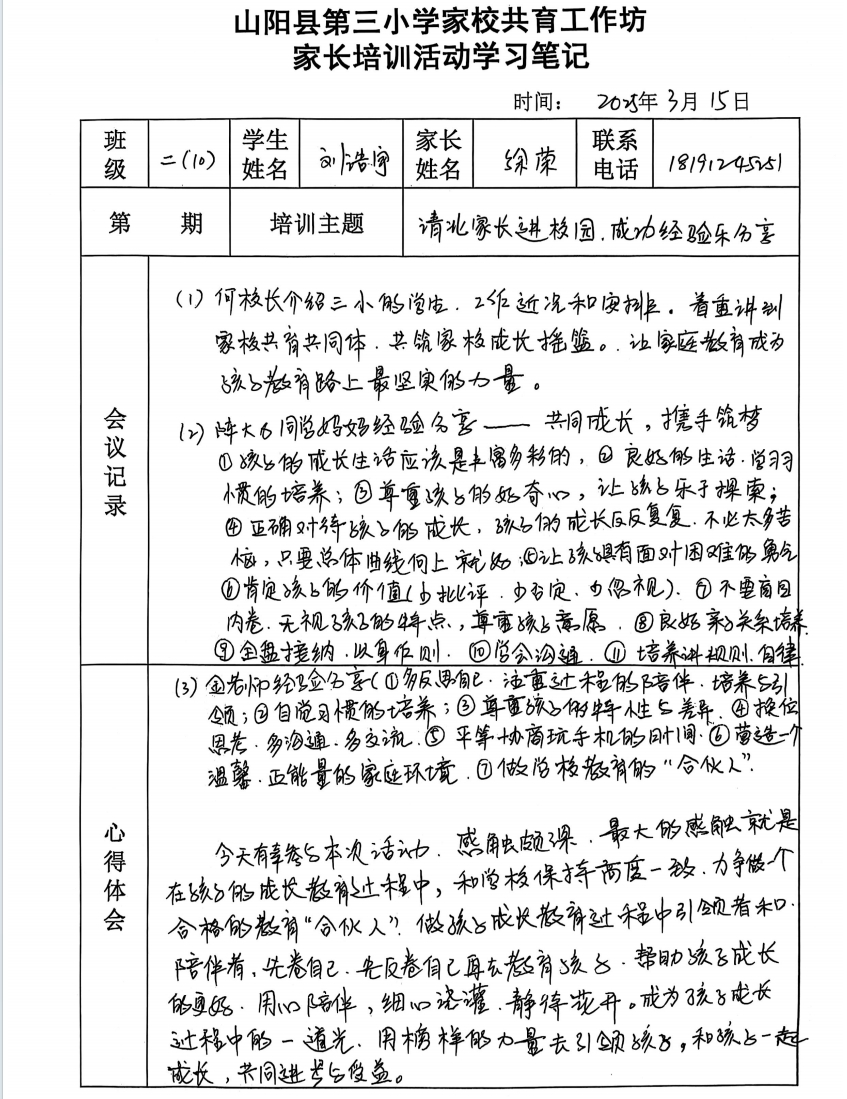 山阳县第三小学家校共育工作坊
家长培训活动学习笔记
时间： 2025年3月15日
班级 二(10) 学生姓名 刘浩宇 家长姓名 徐荣 联系电话 18191245251
第 期 培训主题 清北家长进校园.成功经验乐分享
会议记录
(1) 何校长介绍三小的学生.工作近况和安排。着重讲到
家校共育共同体.共筑家校成长摇篮。让家庭教育成为
孩子教育路上最坚实的力量。
(2) 同学妈妈经验分享——共同成长，携手筑梦
①孩子的成长生活应该是丰富多彩的，②良好的生活.学习习
惯的培养；③尊重孩子的好奇心，让孩子乐于探索；
④正确对待孩子的成长，孩子的成长反反复复.不必太多苦
恼，只要总体曲线向上就好；⑤让孩子具有面对困难的勇气
⑥肯定孩子的价值(少批评.少否定.少忽视). ⑦不要盲目
内卷.无视孩子的特点，尊重孩子意愿. ⑧良好亲子关系培养
⑨全盘接纳.以身作则. ⑩学会沟通. ⑪培养讲规则.自律
(3) 金老师经验分享(①多反思自己.注重过程的陪伴.培养与引
领；②自觉习惯的培养；③尊重孩子的特性与差异. ④换位
思考.多沟通.多交流. ⑤平等协商玩手机的时间. ⑥营造一个
温馨.正能量的家庭环境. ⑦做学校教育的“合伙人”.
心得体会
今天有幸参与本次活动.感触颇深.最大的感触就是
在孩子的成长教育过程中，和学校保持高度一致.力争做一个
合格的教育“合伙人”.做孩子成长教育过程中引领者和
陪伴者，先卷自己.先反卷自己再去教育孩子.帮助孩子成长
的更好.用心陪伴，细心浇灌.静待花开。成为孩子成长
过程中的一道光.用榜样的力量去引领孩子，和孩子一起
成长，共同进步与受益。